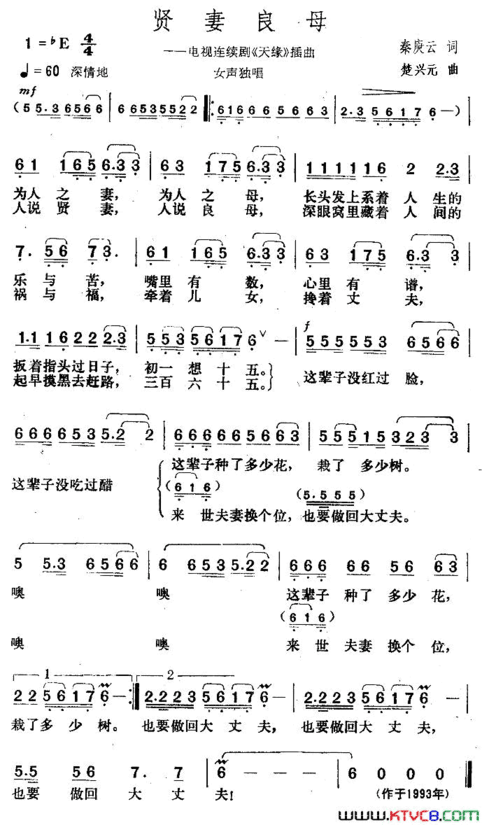 贤妻良母
1=♭E 4/4
——电视连续剧《天缘》插曲
秦庚云 词
♩=60 深情地
女声独唱
楚兴元 曲
mf
(5 5.3 6 5 6 6 | 5 5.3 5 2 2 |: 6 1 6 6 5 6 6 5 6 6 3 | 2.3 5 6 1 7 6 -) |
6 1 1 6 5 6.3 3 | 6 3 1 7 5 6.3 3 | 1 1 1 1 1 1 6 2 2.3 |
为人之妻，为人之母，长头发上系着人生的
人说贤妻，人说良母，深眼窝里藏着人间的
7. 5 6 7 3. | 6 1 1 6 5 6 3 0 | 6 2 1 7 5 6.3 3 |
乐与苦，嘴里有数，心里有谱，
祸与福，牵着儿女，搀着丈夫，
1.1 1 6 2 2 2.3 | 5.3 5 6 1 7 6 - | f 5 5 5 5 5 3 6 5 6 6 |
扳着指头过日子，初一想十五。
起早摸黑去赶路，三百六十五。
这辈子没红过脸，
6 6 6 6 6 5 3 5.2 2 | 6 6 6 6 6 5 6 6 3 | 5 5 5 1 5 3 2 3 3 |
这辈子种了多少花，栽了多少树。
这辈子没吃过醋
(6 1 6) (5.5 5 5)
来世夫妻换个位，也要做回大丈夫。
5 5.3 6 5 6 6 | 5 5.3 6 5 6 6 | 6 6 6 6 6 5 6 6 3 |
噢 噢 这辈子种了多少花，
(6 1 6)
噢 噢 来世夫妻换个位，
1 2
2 2 5 6 1 7 6 :| 2.2 2 2 3 5 6 1 7 6 | 2.2 2 2 3 5 6 1 7 6 |
栽了多少树。也要做回大丈夫，也要做回大丈夫，
5.5 5 6 7. 7 | 6 - - - | 6 0 0 0 |
也要做回大丈夫！
(作于1993年)
www.KTVC8.COM